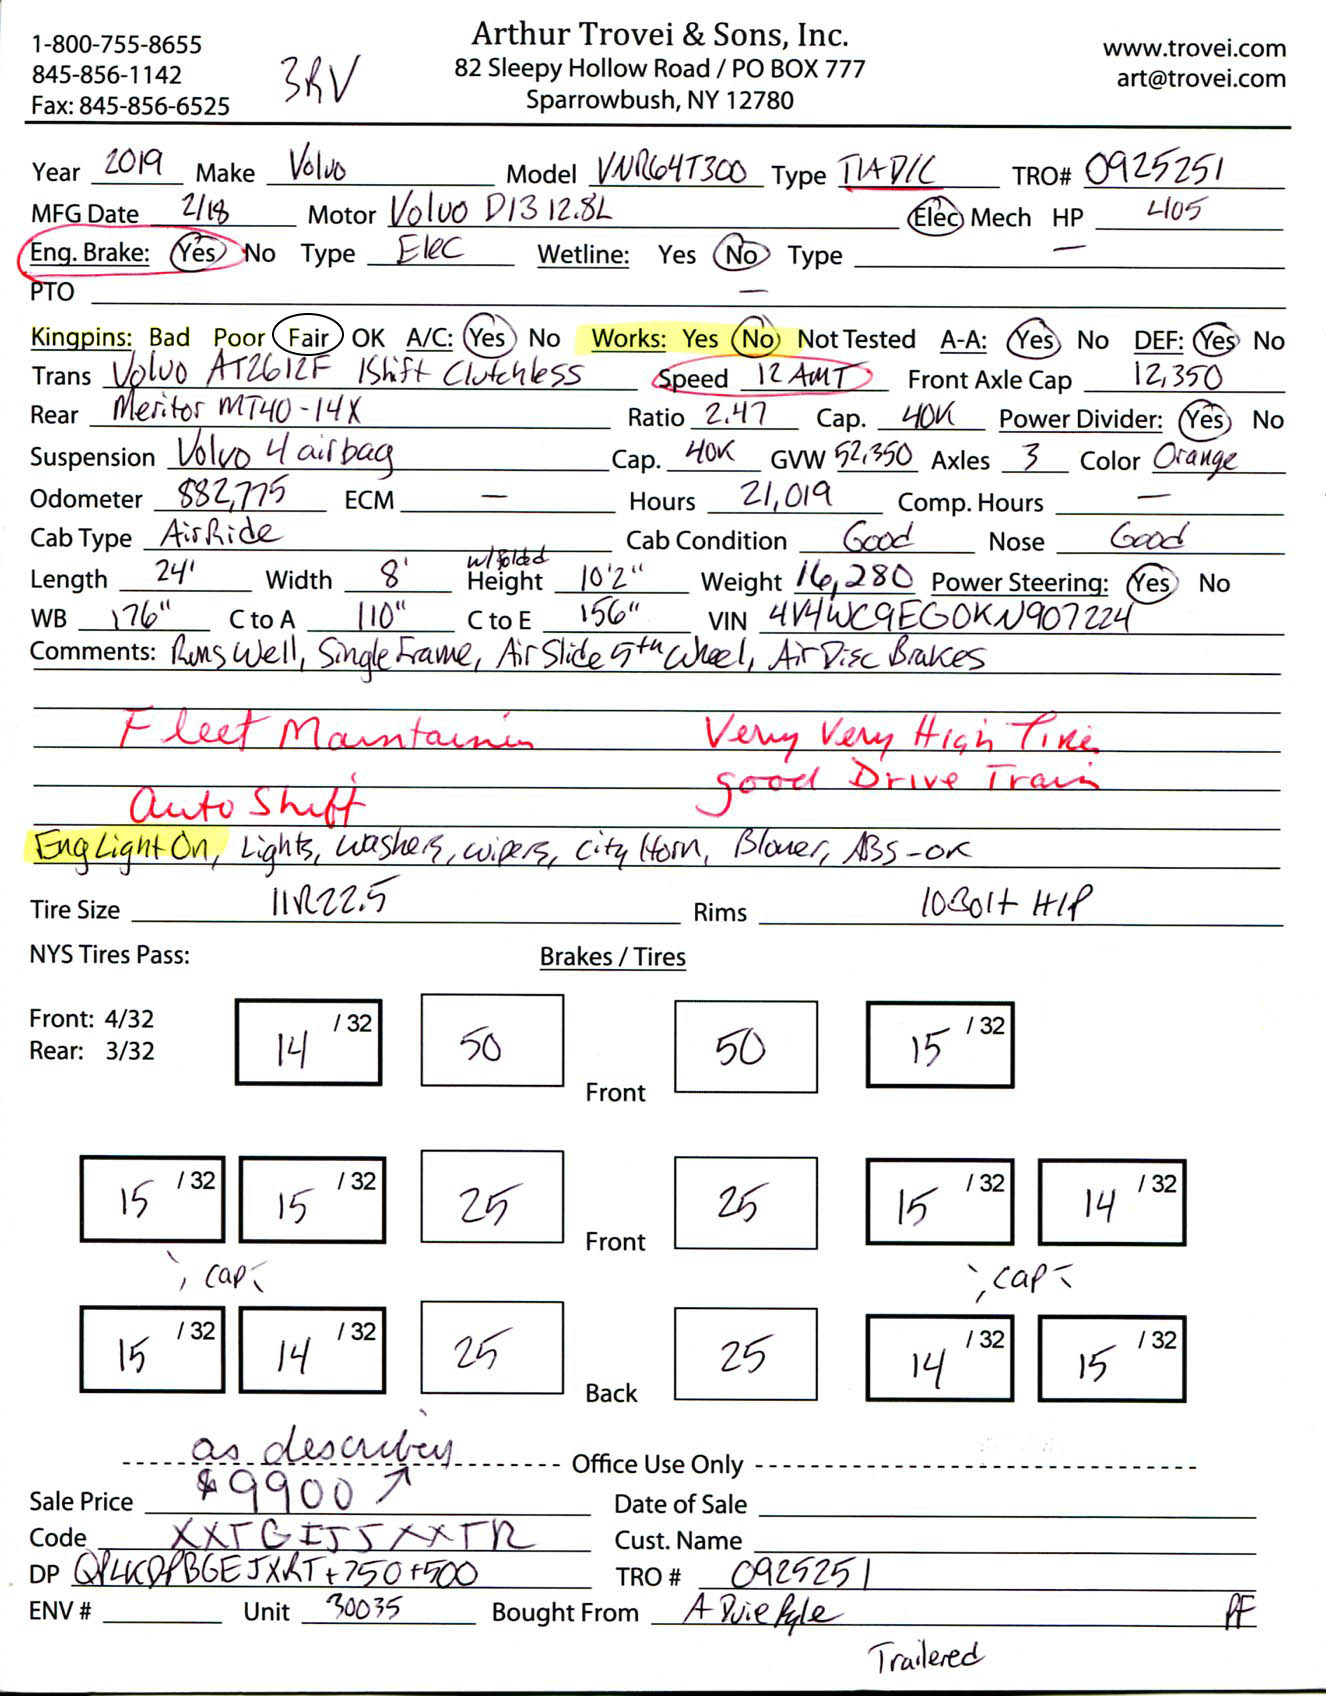 Arthur Trovei & Sons, Inc.
1-800-755-8655 82 Sleepy Hollow Road / PO BOX 777 www.trovei.com
845-856-1142 3RV Sparrowbush, NY 12780 art@trovei.com
Fax: 845-856-6525
Year 2019 Make Volvo Model VNR64T300 Type T/A D/C TRO# 0925251
MFG Date 2/18 Motor Volvo D13 12.8L Elec Mech HP 405
Eng. Brake: Yes No Type Elec Wetline: Yes No Type —
PTO —
Kingpins: Bad Poor Fair OK A/C: Yes No Works: Yes No Not Tested A-A: Yes No DEF: Yes No
Trans Volvo AT2612F IShift Clutchless Speed 12 AMT Front Axle Cap 12,350
Rear Meritor MT40-14X Ratio 2.47 Cap. 40K Power Divider: Yes No
Suspension Volvo 4 airbag Cap. 40K GVW 52,350 Axles 3 Color Orange
Odometer 882,775 ECM — Hours 21,019 Comp. Hours —
Cab Type AirRide Cab Condition Good Nose Good
w/folded
Length 24' Width 8' Height 10'2" Weight 16,280 Power Steering: Yes No
WB 176" C to A 110" C to E 156" VIN 4V4WC9EG0KN907224
Comments: Runs Well, Single Frame, Air Slide 5th Wheel, Air Disc Brakes
Fleet Maintain Very Very High Tire
good Drive Train
Auto Shift
Eng Light On, Lights, washers, wipers, City Horn, Blower, ABS-OK
Tire Size 11R22.5 Rims 10Bolt H/P
NYS Tires Pass: Brakes / Tires
Front: 4/32 14 /32 50 50 15 /32
Rear: 3/32
Front
15 /32 15 /32 25 25 15 /32 14 /32
Front
cap cap
15 /32 14 /32 25 25 14 /32 15 /32
Back
as describing
Office Use Only
Sale Price $9900 Date of Sale
Code XXTGIJJXXTR Cust. Name
DP QPLKDPBGEJXRT+750+500 TRO # 0925251
ENV # Unit 30035 Bought From A Duie Pyle PF
Trailered